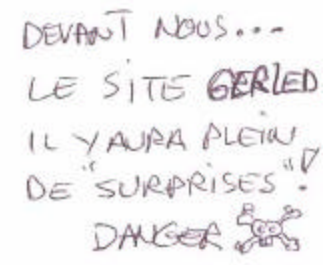 DEVANT NOUS...
LE SITE GERLED
IL Y AURA PLEIN
DE "SURPRISES"!
DANGER